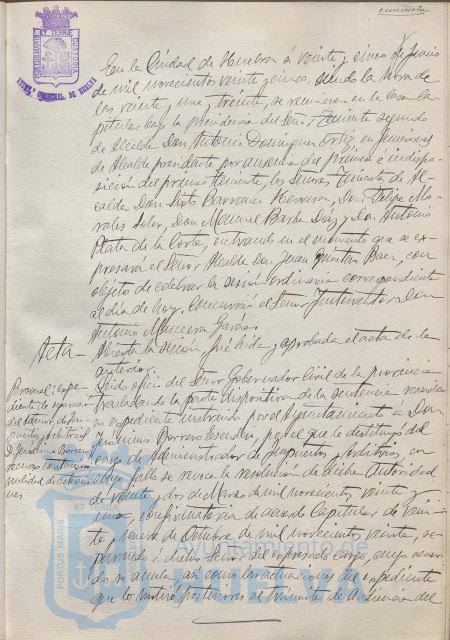 PORTUS MARIS ET TERRÆ CUSTODIA
AYUNT. MUNICIPAL DE HUELVA
En la Ciudad de Huelva á veinte y cinco de Junio
de mil novecientos veinte y cinco, siendo la hora de
las veinte, una, treinta, se reunieron en la Sala Ca-
pitular bajo la presidencia del Señor Teniente segundo
de Alcalde Don Antonio Dominguez Ortiz, en funciones
de Alcalde presidente, por ausencia del primero e indispo-
sición del primer Teniente, los Señores Teniente de Al-
calde Don Sixto Barranco Herrera, Don Felipe Mo-
rales Soler, Don Manuel Barba Diaz y Don Antonio
Plata de la Corte, entrando en el momento que se ex-
presará el Señor Alcalde Don Juan Quintero Baez, con
objeto de celebrar la sesión ordinaria correspondiente
al dia de hoy. Concurrió el Señor Interventor Don
Antonio Garcia
Acta
Abierta la sesión fué leida y aprobada el acta de la
anterior.
Personal: expe-
diente de
del
puestos
D. Francisco Borrero
recurso contencioso
nulidad de actuacio-
nes
Leido oficio del Señor Gobernador Civil de la provincia
trasladando la parte dispositiva de la sentencia recaida
en expediente instruido por el Ayuntamiento á Don
Francisco Borrero Escudero, por el que le destituyó del
cargo de Administrador de Impuestos y Arbitrios, en
cuyo fallo se revoca la resolución de dicha Autoridad
de veinte y dos de Marzo de mil novecientos veinte y
uno, confirmatoria de acuerdo Capitular de vein-
te y nueve de Octubre de mil novecientos veinte, se-
parando á dicho Señor del expresado cargo, cuyo acuer-
do se anula así como las actuaciones del expediente
que lo motivó posteriores al trámite de Audiencia del
ET TERRÆ
PORTUS MARIS
Ayuntamiento
HUELVA